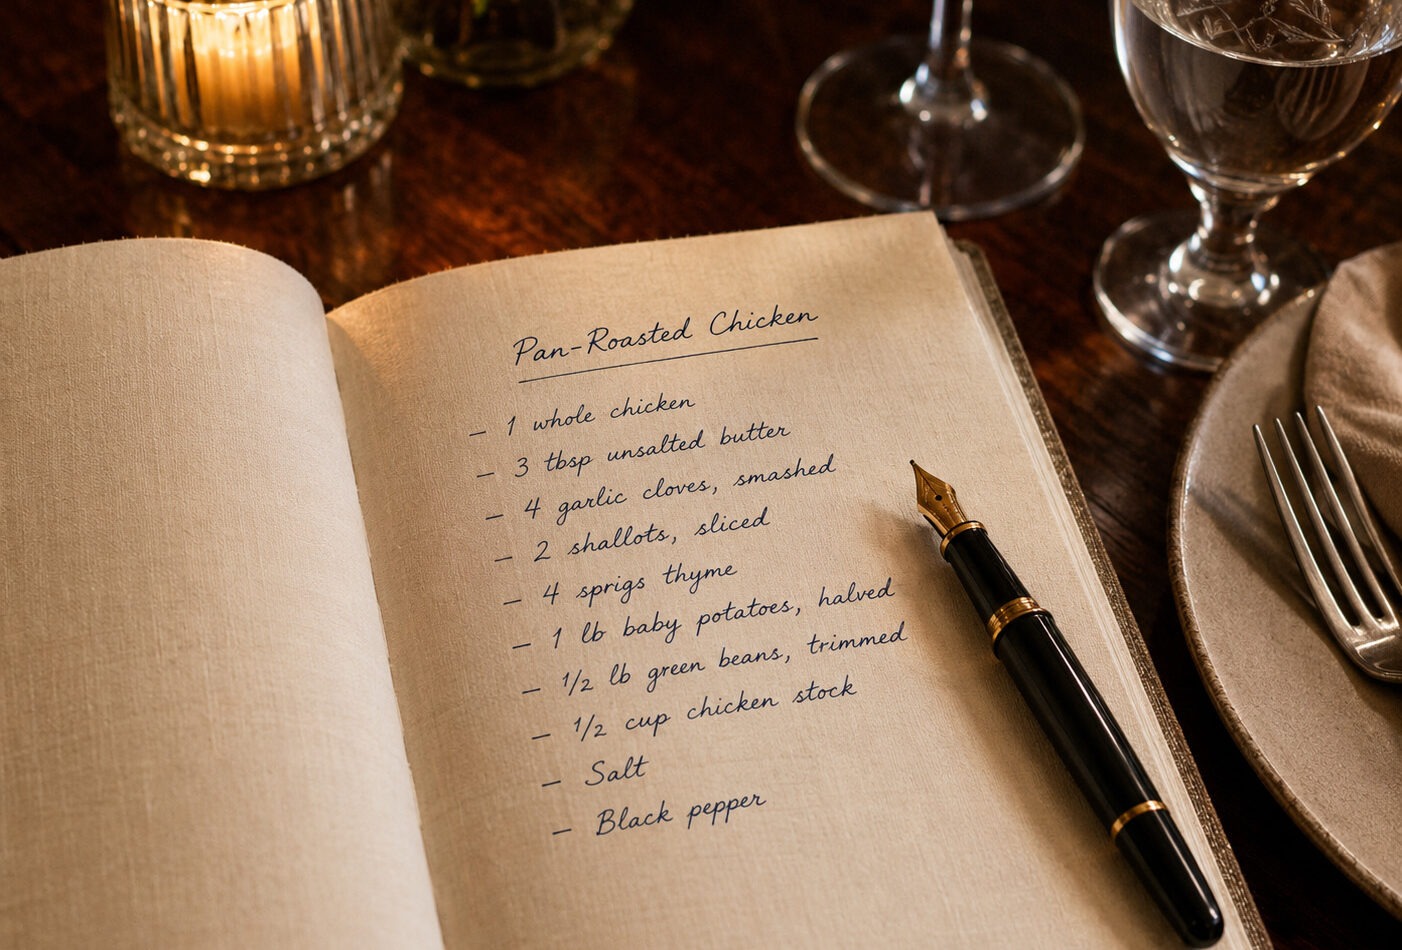 Pan-Roasted Chicken
– 1 whole chicken
– 3 tbsp unsalted butter
– 4 garlic cloves, smashed
– 2 shallots, sliced
– 4 sprigs thyme
– 1 lb baby potatoes, halved
– 1/2 lb green beans, trimmed
– 1/2 cup chicken stock
– Salt
– Black pepper